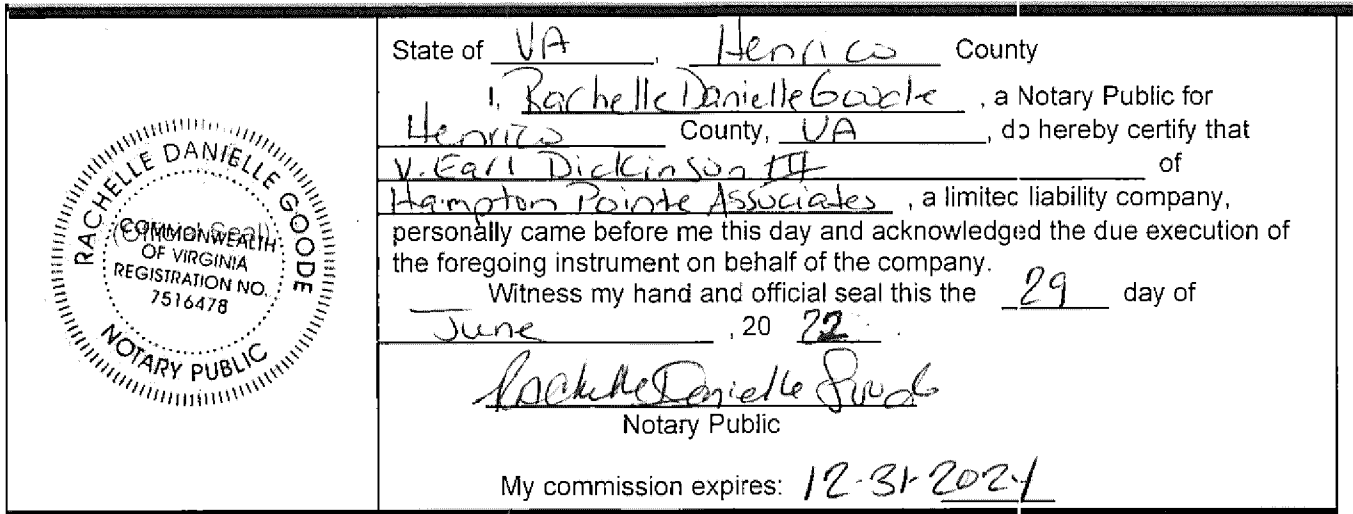 RACHELLE DANIELLE GOODE
(Official Seal)
COMMONWEALTH
OF VIRGINIA
REGISTRATION NO.
7516478
NOTARY PUBLIC
State of VA, Henrico County
I, Rachelle Danielle Goode, a Notary Public for
Henrico County, VA, do hereby certify that
V. Earl Dickinson III of
Hampton Pointe Associates, a limited liability company,
personally came before me this day and acknowledged the due execution of
the foregoing instrument on behalf of the company.
Witness my hand and official seal this the 29 day of
June, 20 22.
Rachelle Danielle Goode
Notary Public
My commission expires: 12-31-2024